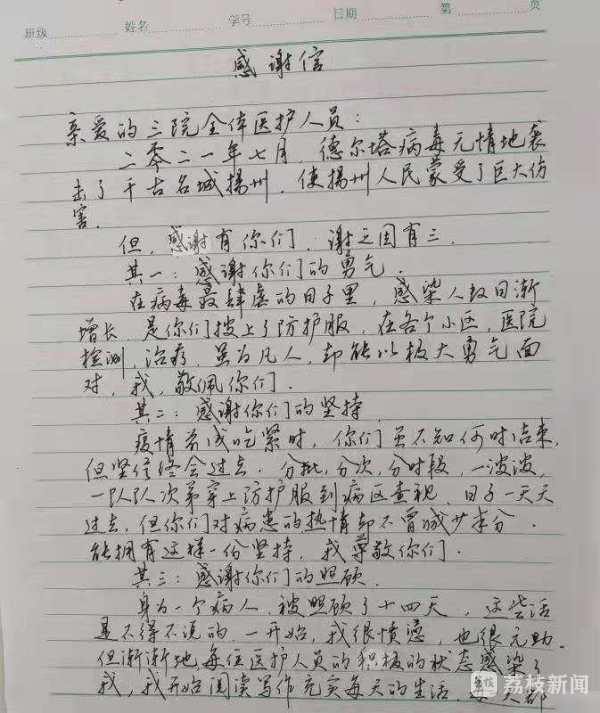 班级 姓名 学号 日期 第 页
感谢信
亲爱的三院全体医护人员：
二零二一年七月，德尔塔病毒无情地袭
击了千古名城扬州，使扬州人民蒙受了巨大伤
害。
但，感谢有你们，谢之因有三。
其一：感谢你们的勇气。
在病毒最肆虐的日子里，感染人数日渐
增长，是你们披上了防护服，在各个小区，医院
检测，治疗，虽为凡人，却能以极大勇气面
对，我，敬佩你们。
其二：感谢你们的坚持。
疫情首战吃紧时，你们虽不知何时结束，
但坚信终会过去。分批，分次，分时段，一波波，
一队队次第穿上防护服到病区查视，日子一天天
过去，但你们对病患的热情却不曾减少半分。
能拥有这样一份坚持，我尊敬你们。
其三：感谢你们的照顾。
身为一个病人，被照顾了十四天，这些话
是不得不说的，一开始，我很愤懑，也很无助。
但渐渐地，每位医护人员的积极的状态感染了
我，我开始阅读写作充实每天的生活，
荔枝新闻